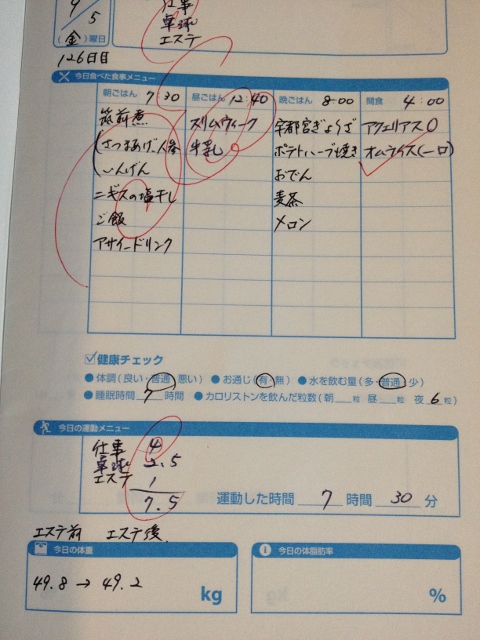 4/5
(金)曜日
仕事
卓球
エステ
126日目
今日食べた食事メニュー
朝ごはん 7:30
昼ごはん 12:40
晩ごはん 8:00
間食 4:00
筑前煮
(さつまあげ、人参
いんげん
ニギスの塩干し
ご飯
アサイードリンク
スリムウィーク
牛乳
宇都宮ぎょうざ
ポテトハーブ焼き
おでん
麦茶
メロン
アクエリアス0
オムライス(一口)
健康チェック
●体調(良い・普通・悪い) ●お通じ(有・無) ●水を飲む量(多・普通・少)
●睡眠時間 7 時間 ●カロリストンを飲んだ粒数(朝 粒 昼 粒 夜 6 粒)
今日の運動メニュー
仕事 4
卓球 2.5
エステ 1
7.5
運動した時間 7 時間 30 分
エステ前 エステ後
今日の体重
49.8 → 49.2 kg
今日の体脂肪率
%